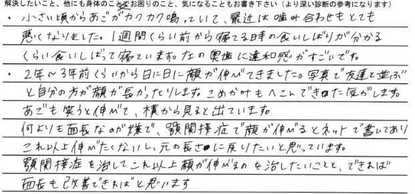 解決したいこと、他にも身体のことでお困りのこと、気になることもお書き下さい（より深い診断の参考になります）
・小さい頃からあごがカクカク鳴っていて、最近は噛み合わせもとても
悪くなりました。1週間くらい前から寝てる時の食いしばりが分かる
くらい食いしばって寝ていました。左の奥歯に違和感がすごいです。
・2年～3年前くらいから日に日に顔が伸びてきました。写真で友達と並ぶ
と自分の方が顔が長かったりします。こめかみもへこんできた気がします。
あごも笑うと伸びて、横から見ると出ています。
何よりも面長なのが嫌で、顎関節症で顔が伸びるとネットで書いてあり
これ以上伸びたくないし、元の長さに戻りたいと思っています。
顎関節症を治してこれ以上顔が伸びるのを治したいことと、できれば
面長も改善できればと思います